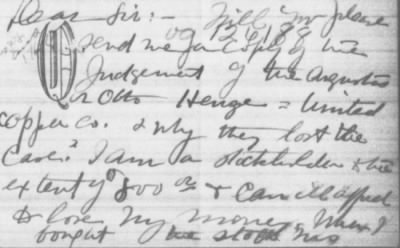 Dear Sir:- Will you please
send me a copy of the
Judgement of the Augustus
or Otto Henge = United
Copper Co. & why they lost the
Case? I am a stockholder to the
extent of 800 & can ill afford
to lose my money. When I
bought the stock